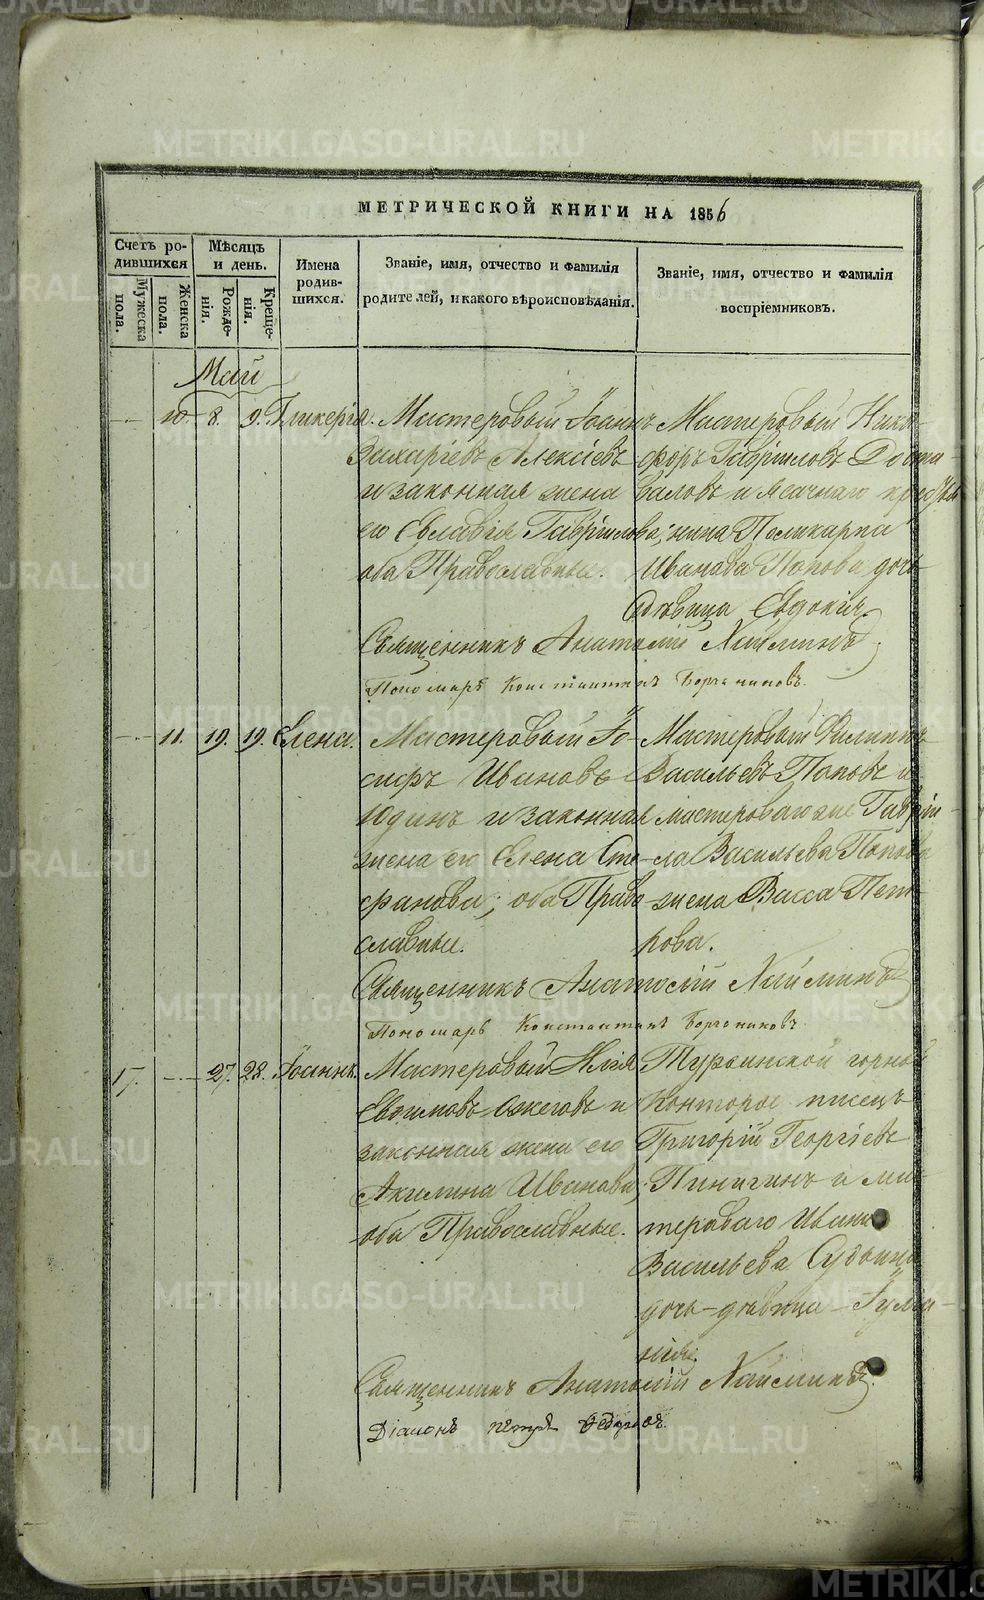 МЕТРИЧЕСКОЙ КНИГИ НА 1856
Счетъ родившихся
Мужеска пола.
Женска пола.
Мѣсяцъ и день.
Рожденія.
Крещенія.
Имена родившихся.
Званіе, имя, отчество и фамилія родителей, и какого вѣроисповѣданія.
Званіе, имя, отчество и фамилія воспріемниковъ.
Май
10. 8. 9. Гликерія.
Мастеровый Іоаннъ
Захаріевъ Алексіевъ
и законная жена
его Евлавія Гаврилова;
оба Православные.
Мастеровый Ники-
форъ Гавріиловъ
и ясачнаго
Поликарпа
Иванова Попова дочь
дѣвица Евдокія.
Священникъ Анатолій Хайминъ
Пономарь Константинъ
11. 19. 19. Елена.
Мастеровый Іо-
сифъ Ивановъ
Юдинъ и законная
жена его Елена Сте-
фанова; оба Право-
славные.
Мастеровый Филиппъ
Васильевъ Поповъ и
мастероваго же Гаврі-
ла Васильева Попова
жена Васса Пет-
рова.
Священникъ Анатолій Хайминъ
Пономарь Константинъ
17. 27. 28. Іоаннъ.
Мастеровый Илія
Евфимовъ Ожеговъ и
законная жена его
Акилина Иванова;
оба Православные.
Турьинской горной
Конторы писецъ
Григорій Георгіевъ
Пинигинъ и мас-
тероваго Ивана
Васильева
дочь-дѣвица Іулиа-
нія.
Священникъ Анатолій Хайминъ
Діаконъ Петръ
METRIKI.GASO-URAL.RU